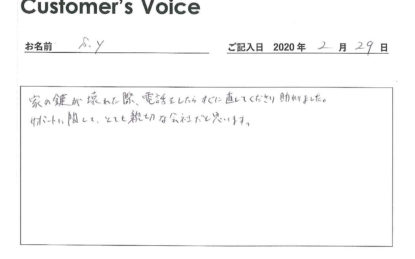 Customer's Voice
お名前 S.Y ご記入日 2020年 2月 29日
家の鍵が壊れた際、電話をしたらすぐに直してくださり助かりました。
サポートに関して、とても親切な会社だと思います。